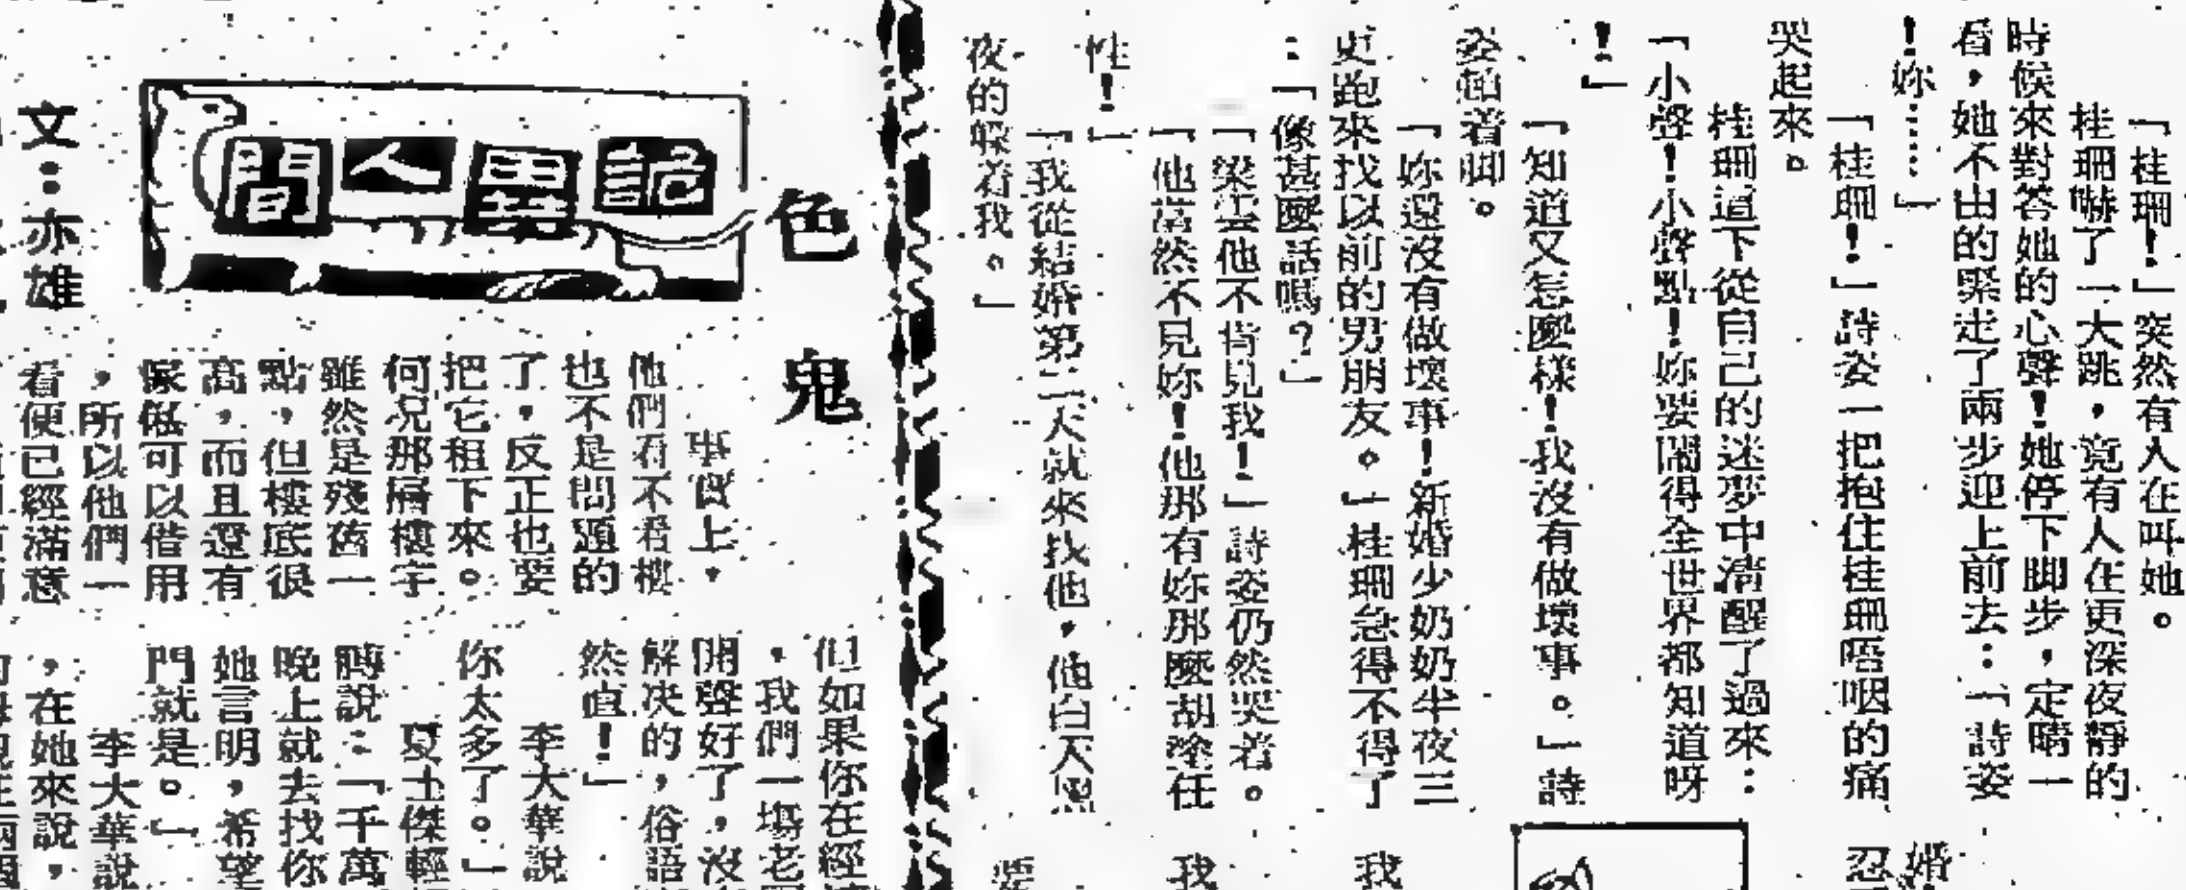 「桂珊！」突然有人在叫她。
桂珊嚇了一大跳，竟有人在更深夜靜的
時候來對答她的心聲！她停下脚步，定睛一
看，她不由的緊走了兩步迎上前去：「詩姿
！妳……」
「桂珊！」詩姿一把抱住桂珊唔咽的痛
哭起來。
桂珊道下從自己的迷夢中清醒了過來：
「小聲！小聲點！妳要鬧得全世界都知道呀
！」
「知道又怎麼樣！我沒有做壞事。」詩
姿頓着脚。
「妳還沒有做壞事！新婚少奶奶半夜三
更跑來找以前的男朋友。」桂珊急得不得了
：「像甚麼話嗎？」
「梁雲他不肯見我！」詩姿仍然哭着。
「他當然不見妳！他那有妳那麼胡塗任
性！」
「我從結婚第二天就來找他，他白天黑
夜的躱着我。」
婚！
忍
我
我
記異人間
色鬼
文：亦雄
事實上，
他們看不看樓
也不是問題的
了，反正也要
把它租下來。
何况那層樓宇
雖然是殘舊一
點，但樓底很
高，而且還有
傢俬可以借用
，所以他們一
看便已經滿意
但如果你在經
，我們一塲老
開聲好了，沒
解决的，俗語
然直！」
李大華說
你太多了。」
夏士傑輕
聘說：「千萬
晚上就去找你
她言明，希望
門就是。」
李大華說
，在她來說，